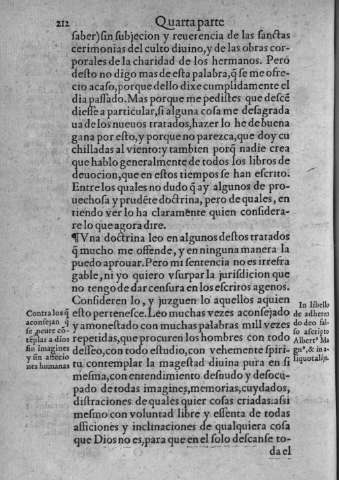 212
Quarta parte
saber) sin subjecion y reuerencia de las sanctas
cerimonias del culto diuino, y de las obras cor-
porales de la charidad de los hermanos. Pero
desto no digo mas desta palabra, q̃ se me ofre-
cio acaso, porque dello dixe cumplidamente el
dia passado. Mas porque me pedistes que descẽ
diesse a particular, si alguna cosa me desagrada
ua de los nueuos tratados, hazer lo he de buena
gana por esto, y porque no parezca, que doy cu
chilladas al viento: y tambien porq̃ nadie crea
que hablo generalmente de todos los libros de
deuocion, que en estos tiempos se han escrito.
Entre los quales no dudo q̃ ay algunos de pro-
uechosa y prudẽte doctrina, pero de quales, en
tiendo ver lo ha claramente quien considera-
re lo que agora dire.
¶Vna doctrina leo en algunos destos tratados
q̃ mucho me offende, y en ninguna manera la
puedo aprouar. Pero mi sentencia no es irrefra
gable, ni yo quiero vsurpar la jurisdicion que
no tengo de dar censura en los escriros agenos.
Consideren lo, y juzguen lo aquellos aquien
esto pertenesce. Leo muchas vezes aconsejado
y amonestado con muchas palabras mill vezes
repetidas, que procuren los hombres con todo
desseo, con todo estudio, con vehemente spiri-
tu contemplar la magestad diuina pura en si
mesma, con entendimiento desnudo y desocu-
pado de todas imagines, memorias, cuydados,
distraciones de quales quier cosas criadas: assi
mesmo con voluntad libre y essenta de todas
afficiones y inclinaciones de qualquiera cosa
que Dios no es, para que en el solo descanse to-
da el
Contra los q̃
aconsejan q̃
se peure cõ
tẽplar a dios
sin imagines
y sin affectio
nes humanas
In libello
de adheren
do deo fal-
so ascripto
Albertº Ma
gnº, & in a-
liquot alijs.